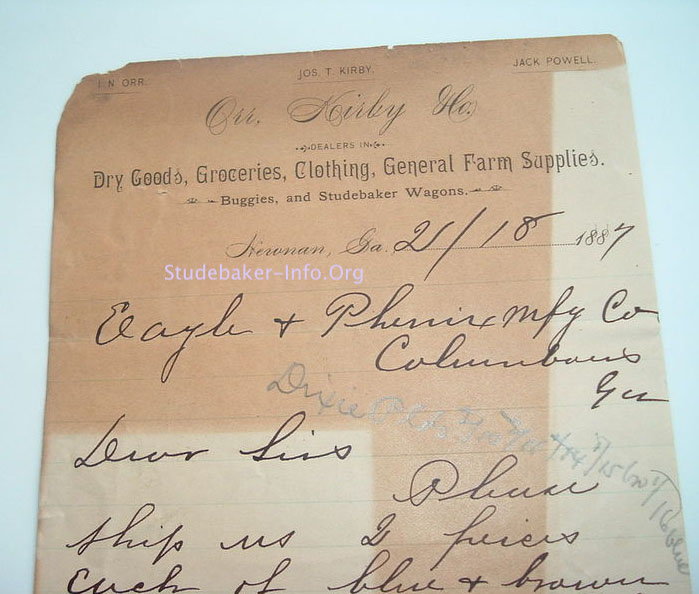 I. N. ORR.
JOS. T. KIRBY.
JACK POWELL.
Orr, Kirby & Co.
DEALERS IN
Dry Goods, Groceries, Clothing, General Farm Supplies.
Buggies, and Studebaker Wagons.
Newnan, Ga. 2/18 1887
Studebaker-Info.Org
Eagle & Phenix Mfg Co
Columbus
Ga
Dixie
Dear Sirs
Please
ship us 2 pieces
each of blue & brown